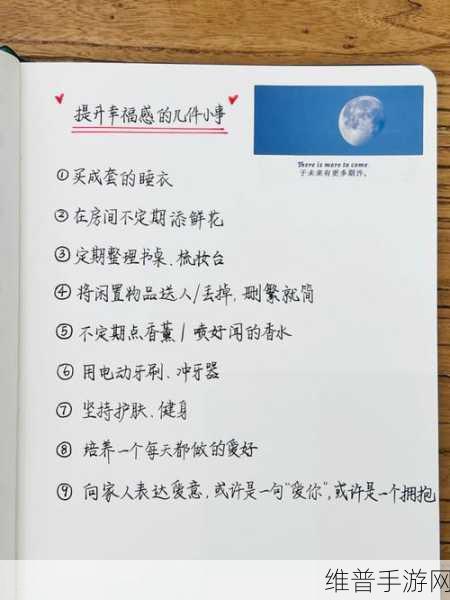 提升幸福感的几件小事
There is more to come
于未来有更多期许。
①买成套的睡衣
②在房间不定期添鲜花
③定期整理书桌、梳妆台
④将闲置物品送人/丢掉,删繁就简
⑤不定期点香薰/喷好闻的香水
⑥用电动牙刷、冲牙器
⑦坚持护肤、健身
⑧培养一个每天都做的爱好
⑨向家人表达爱意,或许是一句“爱你”,或许是一个拥抱
维普手游网